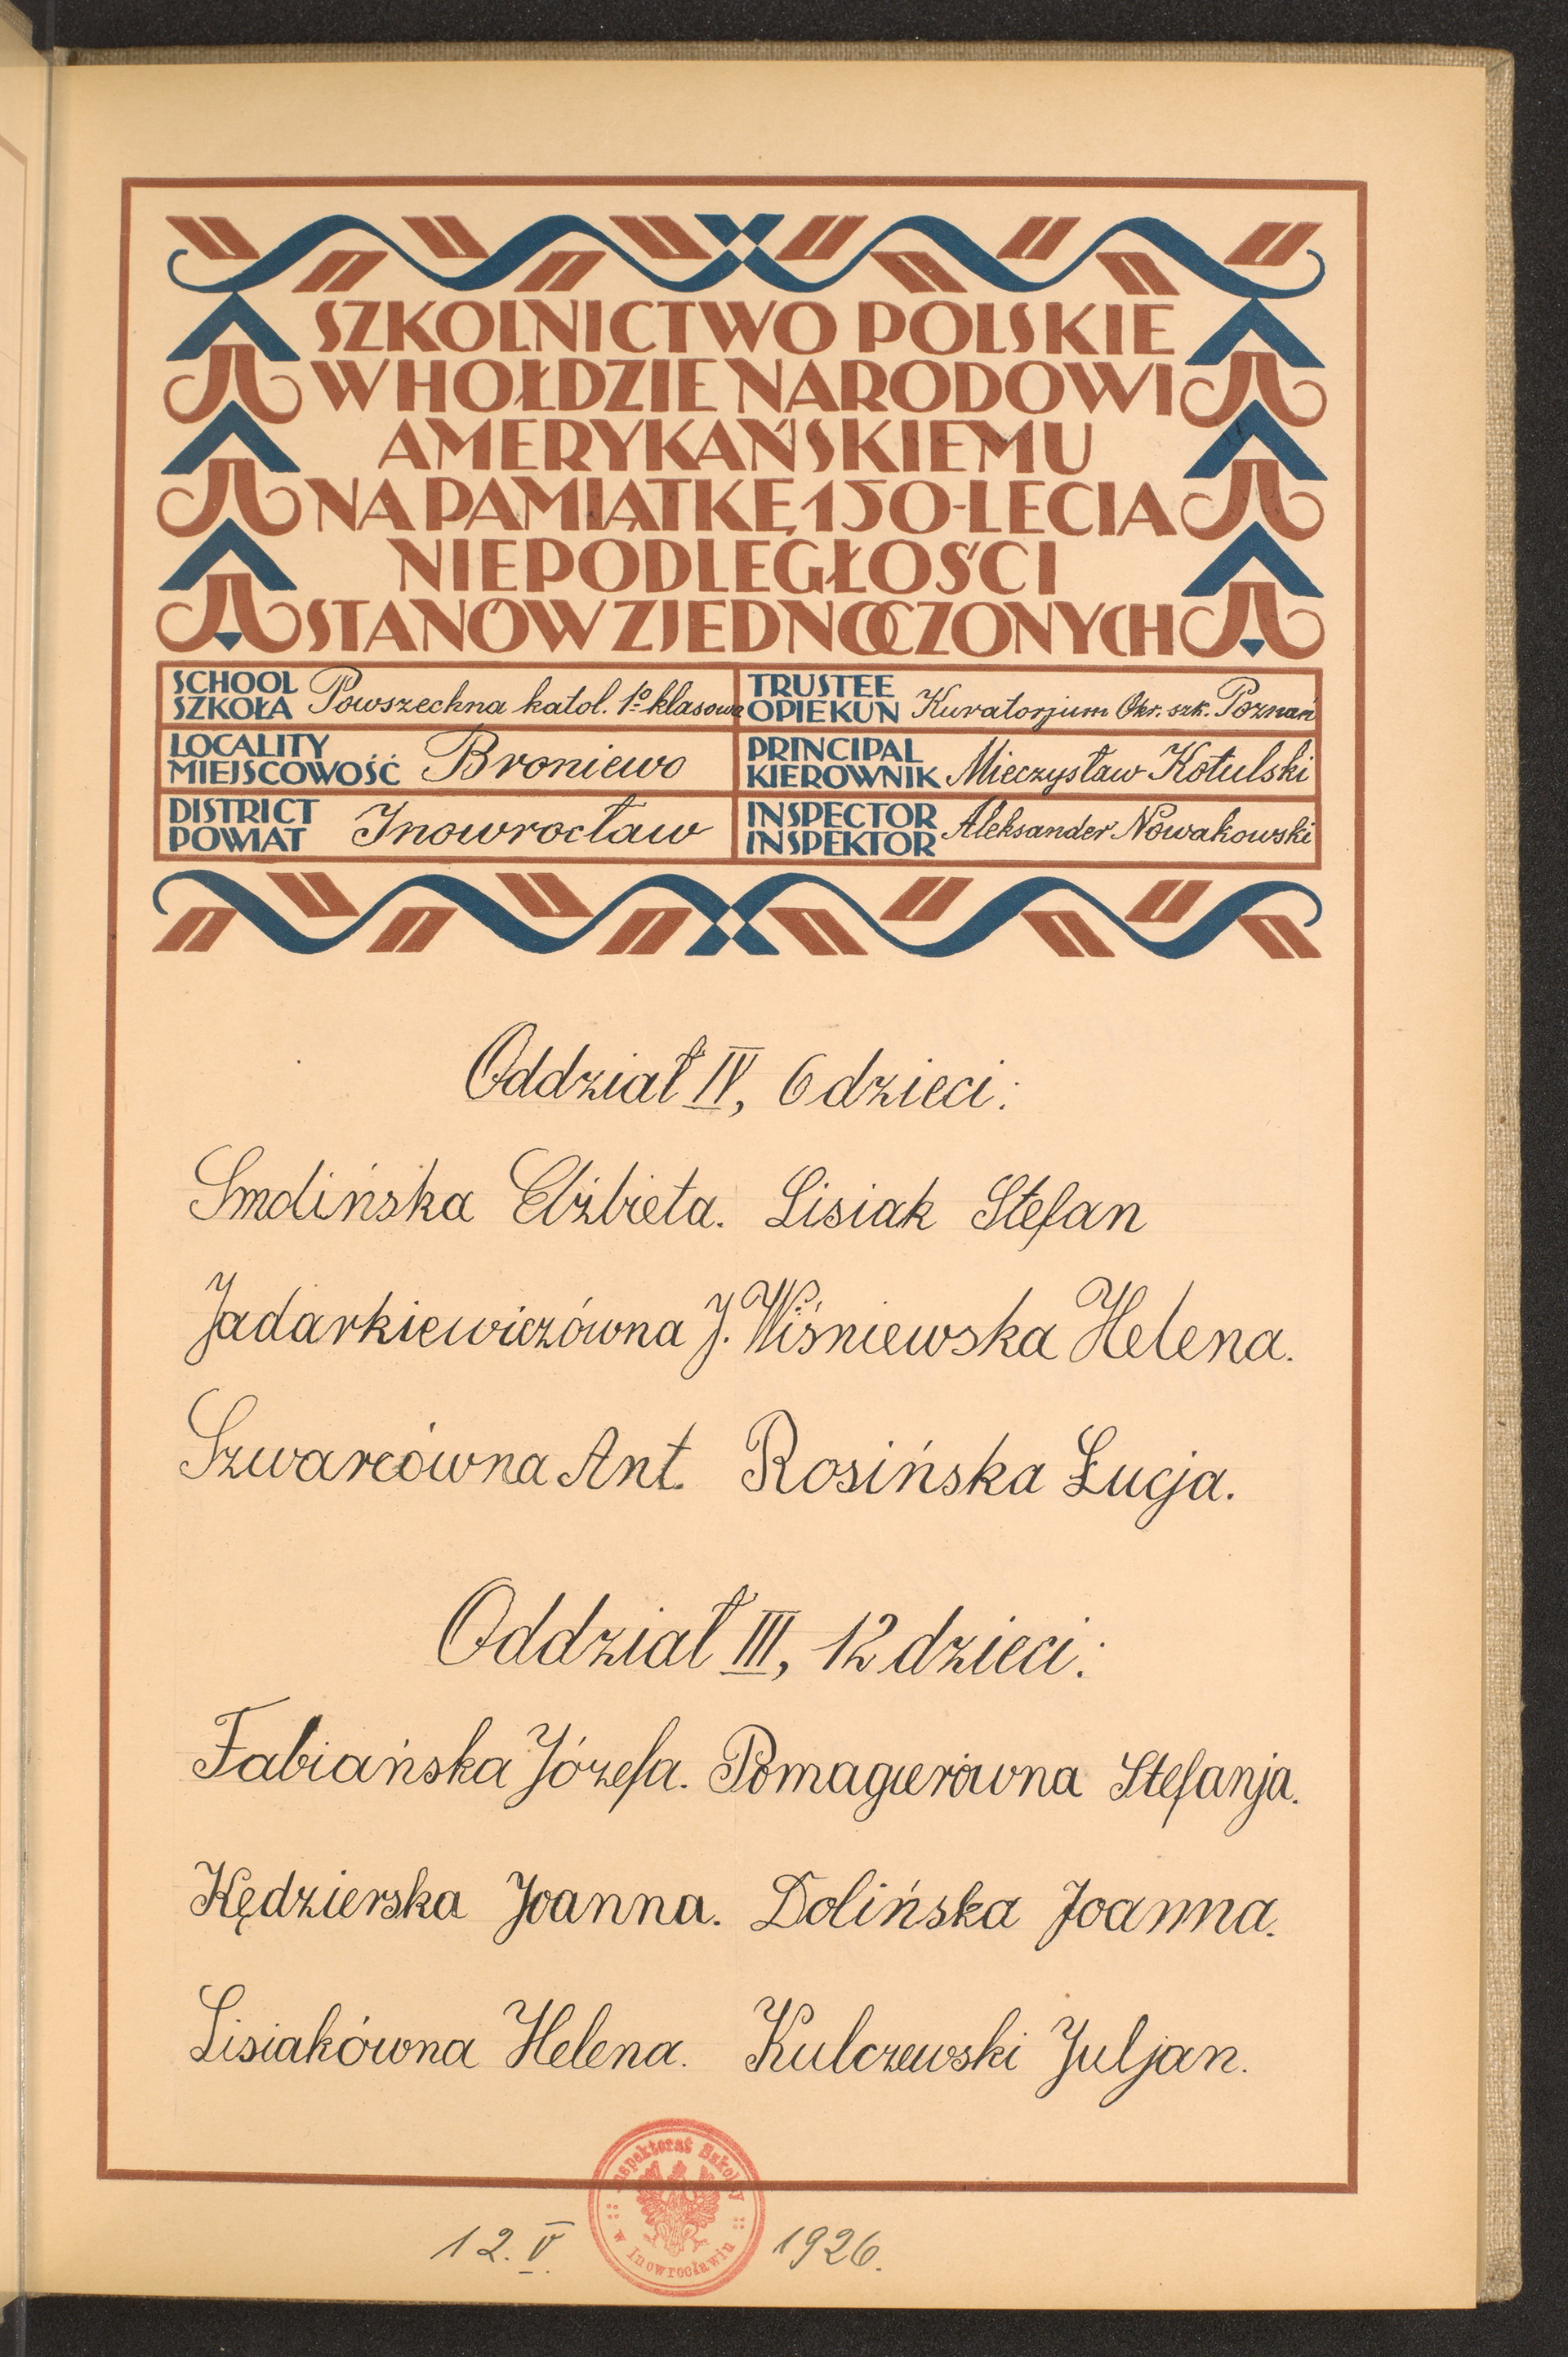 SZKOLNICTWO POLSKIE
W HOŁDZIE NARODOWI
AMERYKAŃSKIEMU
NA PAMIĄTKĘ 150-LECIA
NIEPODLEGŁOŚCI
STANÓW ZJEDNOCZONYCH
SCHOOL
SZKOŁA Powszechna katol. 1º klasowa
TRUSTEE
OPIEKUN Kuratorjum Okr. szk. Poznań
LOCALITY
MIEJSCOWOŚĆ Broniewo
PRINCIPAL
KIEROWNIK Mieczysław Kotulski
DISTRICT
POWIAT Inowrocław
INSPECTOR
INSPEKTOR Aleksander Nowakowski
Oddział IV, 6 dzieci:
Smolińska Elżbieta. Lisiak Stefan
Jadarkiewiczówna J. Wiśniewska Helena.
Szwarcówna Ant. Rosińska Łucja.
Oddział III, 12 dzieci:
Fabiańska Józefa. Pomagierówna Stefanja.
Kędzierska Joanna. Dolińska Joanna.
Lisiakówna Helena. Kulczewski Juljan.
Inspektorat Szkolny
w Inowrocławiu
12. V. 1926.